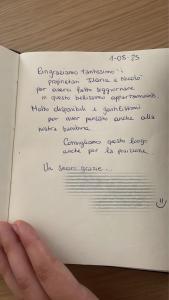 1-08-25
Ringraziamo tantissimo i
proprietari Ilaria e Nicolò
per averci fatto soggiornare
in questo bellissimo appartamento.
Molto disponibili e gentilissimi
per aver pensato anche alla
nostra bambina.
Consigliamo questo luogo
anche per la posizione.
Un Smack grazie...